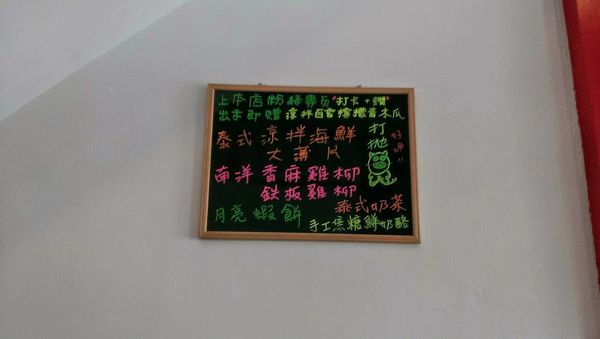 上本店粉絲專頁"打卡+讚"
出示即贈 涼拌百香檸檬青木瓜
泰式涼拌海鮮
大薄片
打拋
好呷!!
南洋香麻雞柳
鉄板雞柳
月亮蝦餅
泰式奶茶
手工焦糖鮮奶酪